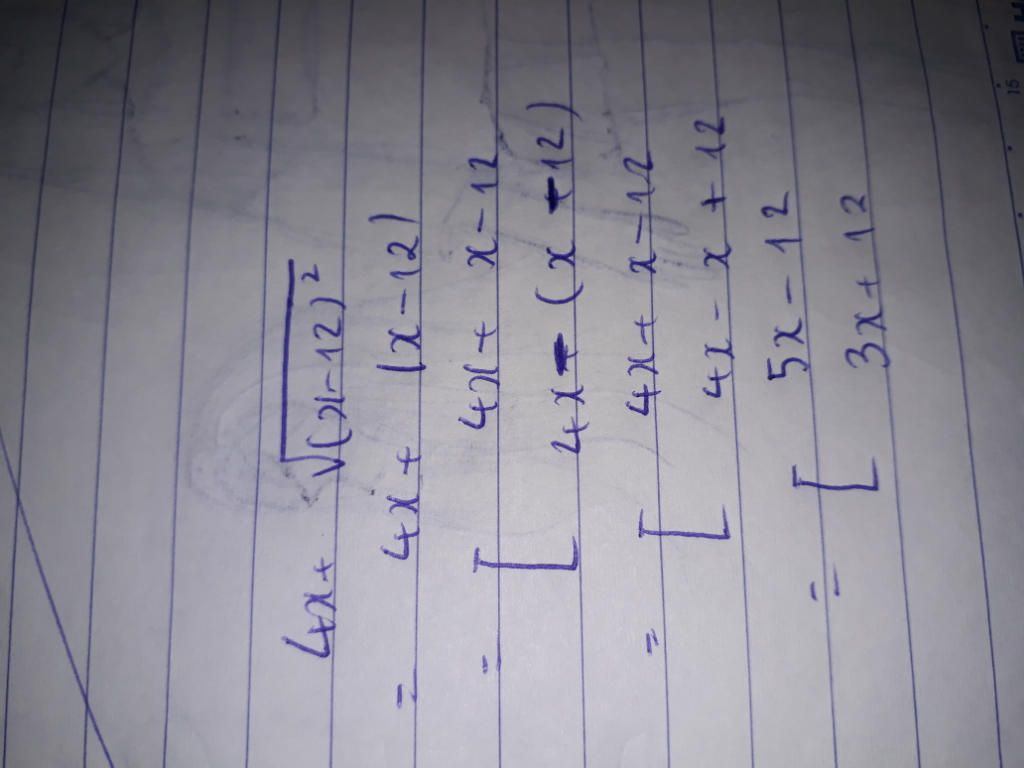 4x + √(x-12)²
= 4x + |x-12|
= [ 4x + x - 12
4x - (x - 12)
= [ 4x + x - 12
4x - x + 12
= [ 5x - 12
3x + 12
15